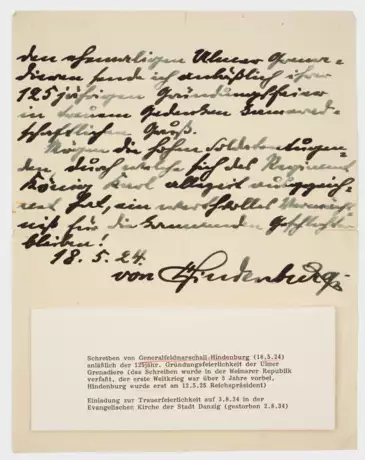 den ehemaligen Ulmer Grena-
dieren sende ich anläßlich ihrer
125jährigen Gründungsfeier
in treuem Gedenken kamerad-
schaftlichen Gruß.
Mögen die hohen Soldatentugen-
den, durch welche sich das Regiment
König Karl allezeit ausgezeich-
net hat, ein wertvolles Vermächt-
niß für die kommenden Geschlechter
bleiben!
18.5.24.
von Hindenburg.
Schreiben von Generalfeldmarschall Hindenburg (18.5.24)
anläßlich der 125jähr. Gründungsfeierlichkeit der Ulmer
Grenadiere (das Schreiben wurde in der Weimarer Republik
verfaßt, der erste Weltkrieg war über 5 Jahre vorbei,
Hindenburg wurde erst am 12.5.25 Reichspräsident)
Einladung zur Trauerfeierlichkeit auf 3.8.34 in der
Evangelischen Kirche der Stadt Danzig (gestorben 2.8.34)